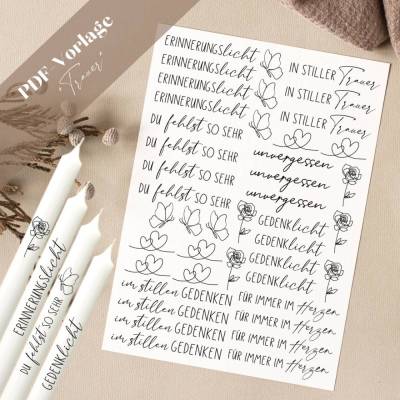 PDF Vorlage
"Trauer"
ERINNERUNGSlicht
ERINNERUNGSlicht
ERINNERUNGSlicht
ERINNERUNGSlicht
IN STILLER Trauer
IN STILLER Trauer
IN STILLER Trauer
DU fehlst SO SEHR
DU fehlst SO SEHR
DU fehlst SO SEHR
DU fehlst SO SEHR
unvergessen
unvergessen
unvergessen
GEDENKlicht
GEDENKlicht
GEDENKlicht
GEDENKlicht
im stillen GEDENKEN
im stillen GEDENKEN
im stillen GEDENKEN
im stillen GEDENKEN
FÜR IMMER IM Herzen
FÜR IMMER IM Herzen
FÜR IMMER IM Herzen
FÜR IMMER IM Herzen
ERINNERUNGSlicht
DU fehlst SO SEHR
GEDENKlicht